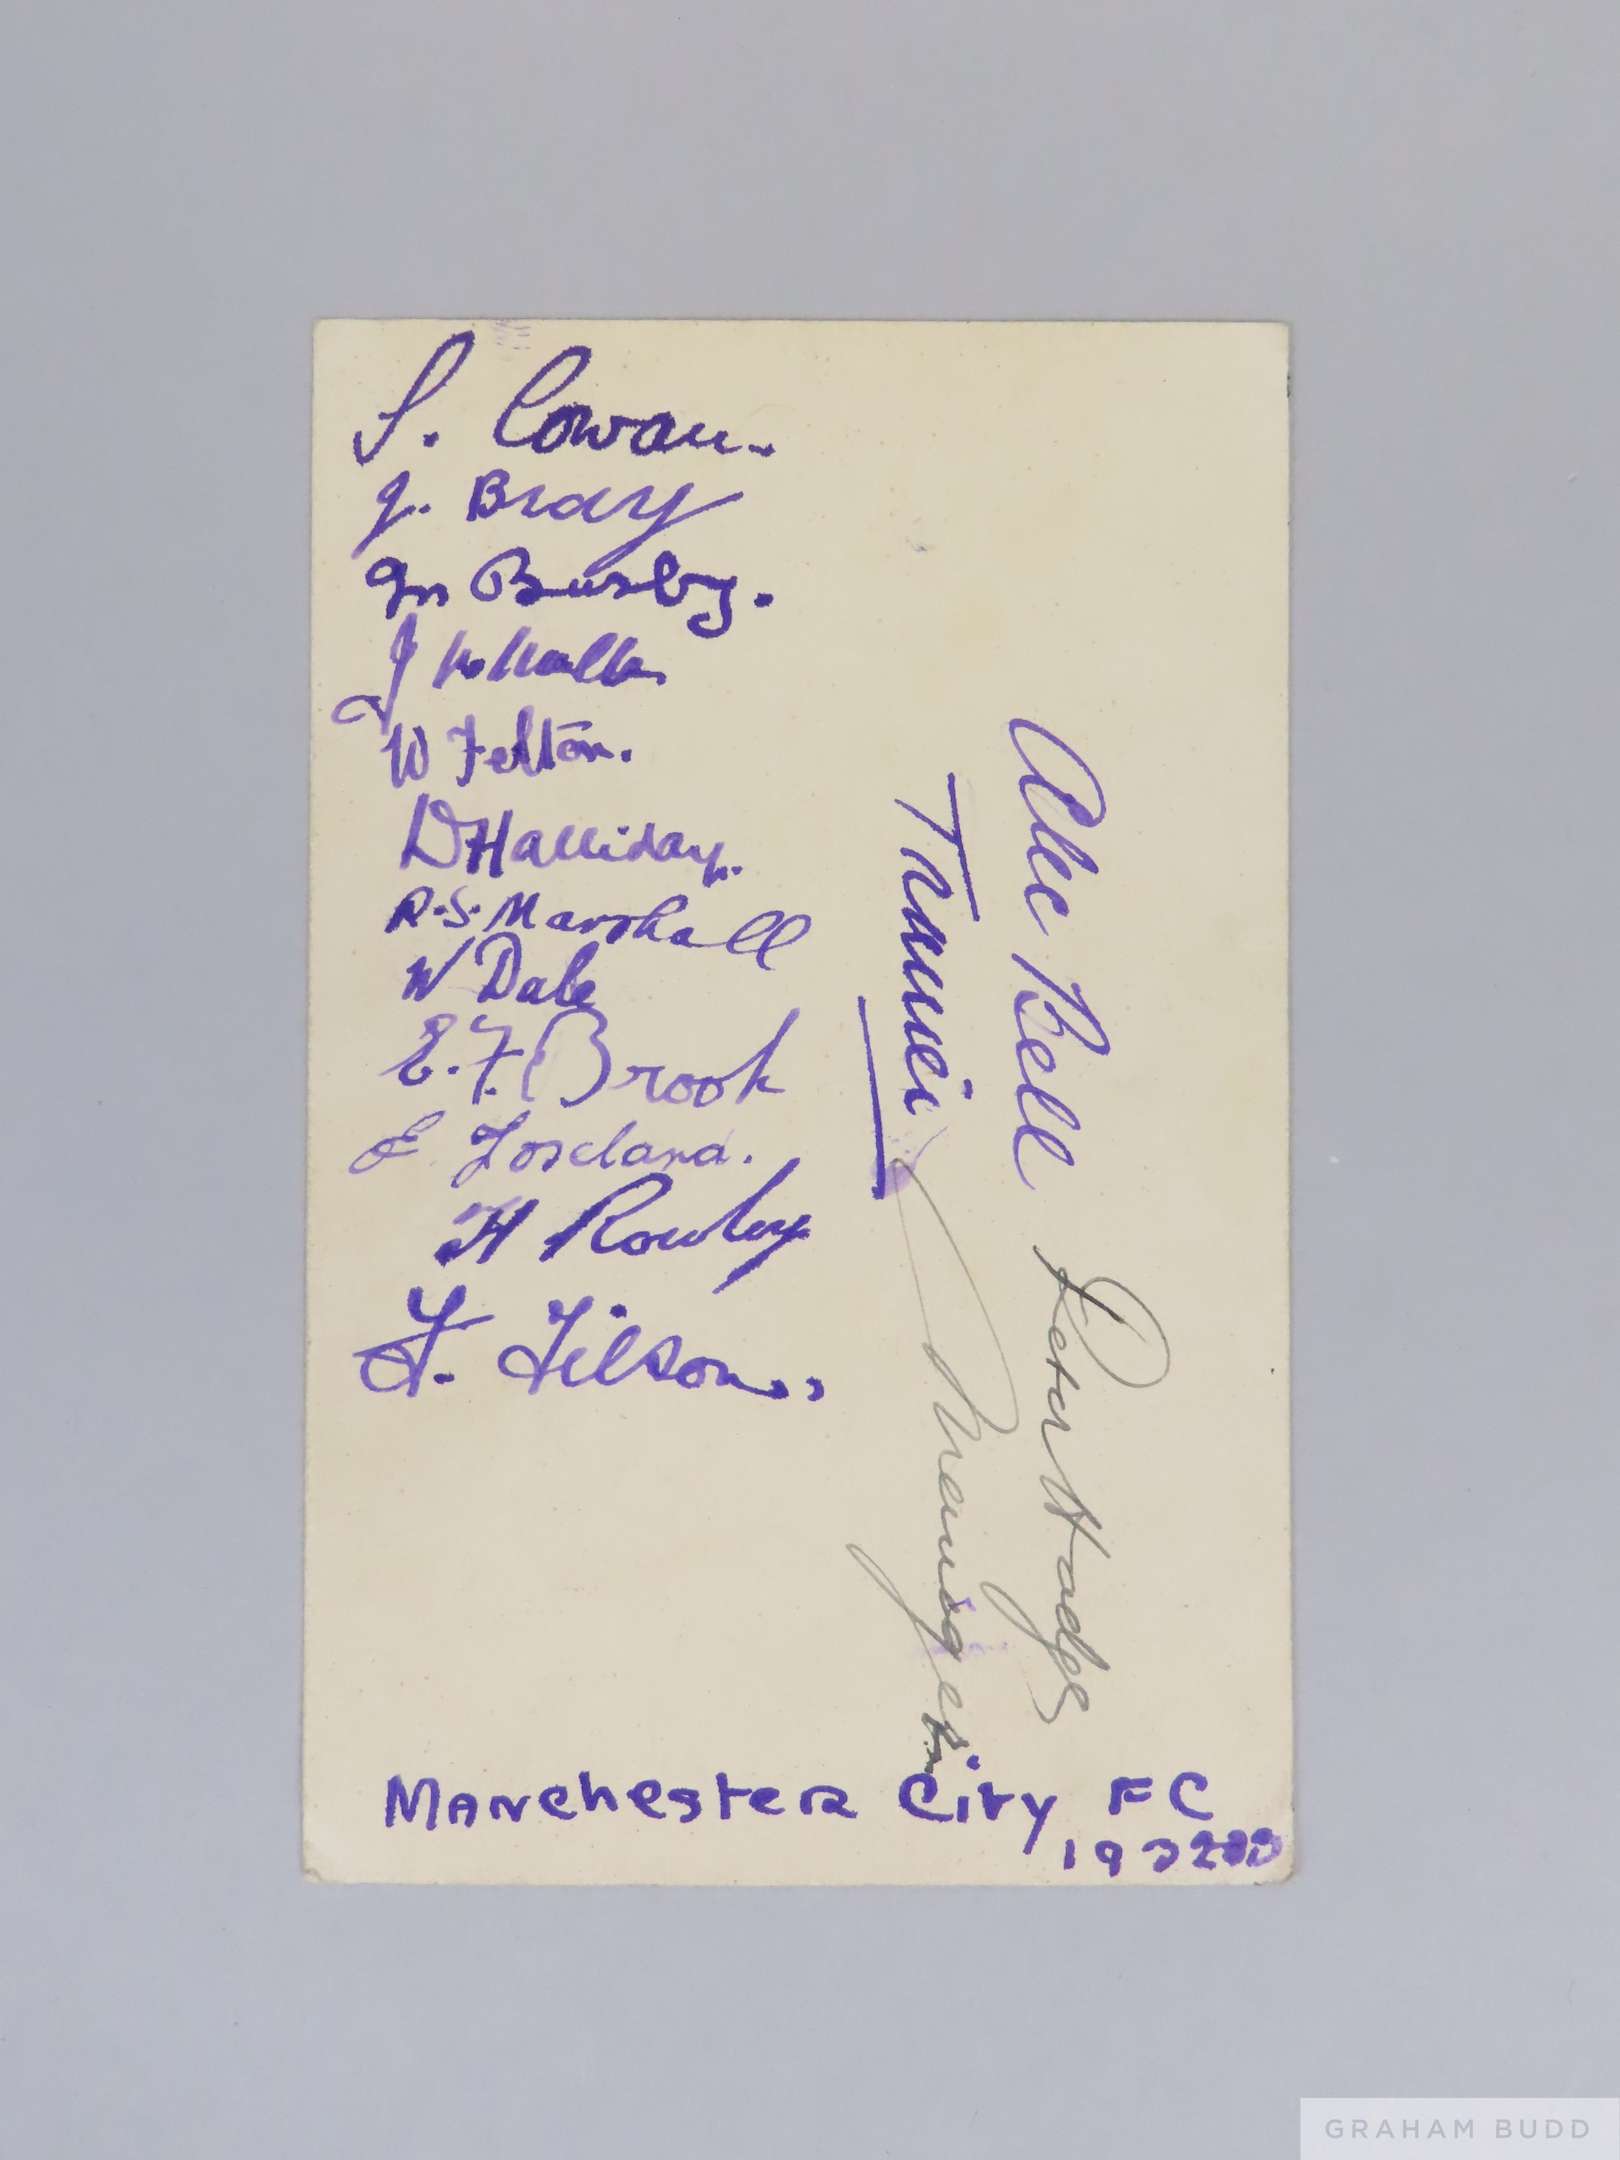 S. Cowan.
J. Bray
M Busby.
J
W Felton.
D Halliday.
R.S. Marshall
W Dale
E.F. Brook
E Toseland.
H Rowley
F. Tilson..
Alec Bell
Trainer
Peter Hodge
Manager.
Manchester City FC
GRAHAM BUDD